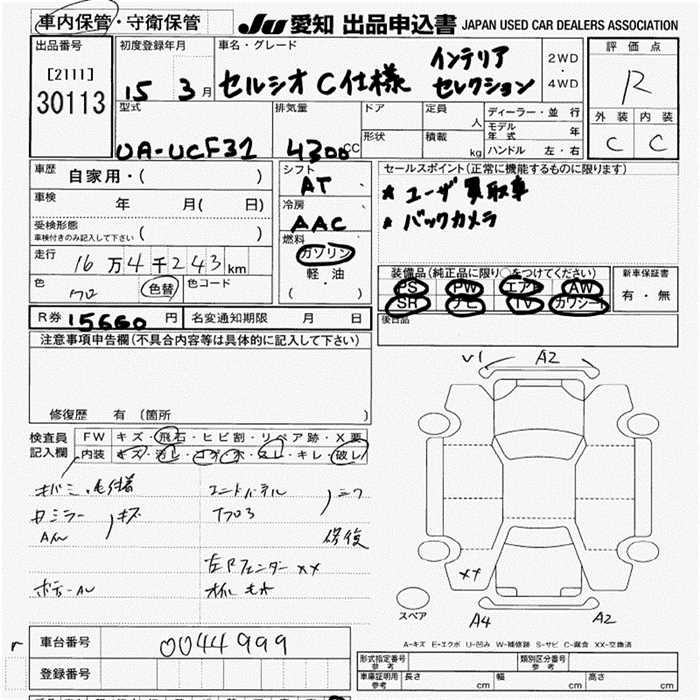 車内保管・守衛保管
JU 愛知 出品申込書 JAPAN USED CAR DEALERS ASSOCIATION
出品番号
[2111]
30113
初度登録年月
15 3月
車名・グレード
セルシオ C仕様 インテリア
セレクション
2WD
・
4WD
評価点
R
外装 内装
C C
型式
UA-UCF31
排気量
4300CC
ドア
形状
定員 人
積載 kg
ディーラー・並行
モデル年式 年
ハンドル 左・右
車歴
自家用・( )
車検
年 月( 日)
受検形態
車検付きのみ記入して下さい ( )
走行
16万4千243km
色
クロ
色替
色コード
シフト
AT
冷房
AAC
燃料
ガソリン
軽・油
( )
セールスポイント(正常に機能するものに限ります)
★ ユーザー買取車
★ バックカメラ
装備品(純正品に限り○をつけてください)
PS PW エアB AW
SR ナビ TV カワシート
新車保証書
有・無
後日品
R券 15660円
名変通知期限 月 日
注意事項申告欄(不具合内容等は具体的に記入して下さい)
修復歴 有(箇所 )
検査員
記入欄
FW キズ・飛石・ヒビ割・リペア跡・X要
内装 キズ・汚レ・コゲ・穴・スレ・キレ・破レ
キズ
AW
左Fフェンダー XX
V1 A2
XX
A4 A2
スペア
A-キズ E-エクボ U-凹み W-補修跡 S-サビ C-腐食 XX-交換済
車台番号
0044999
登録番号
形式指定番号
参考
類別区分番号
参考
車庫証明用
参考
長さ cm
幅 cm
高さ cm